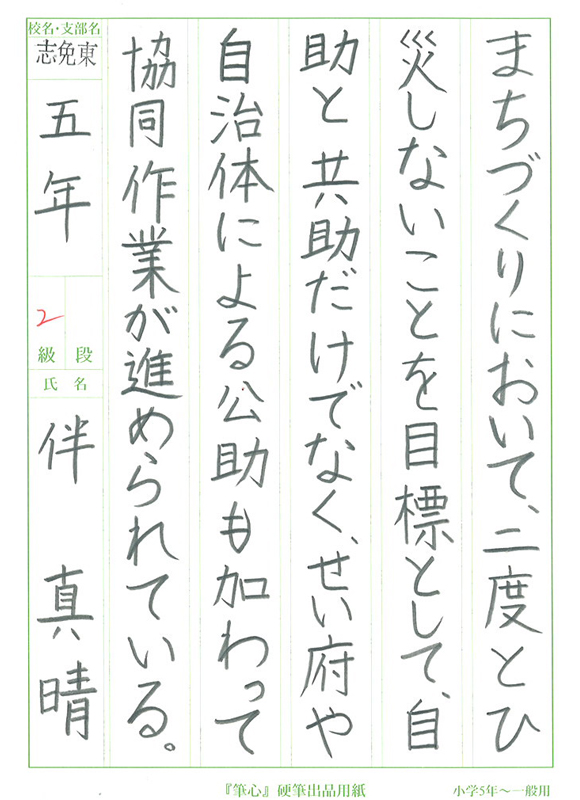 まちづくりにおいて、二度とひ
災しないことを目標として、自
助と共助だけでなく、せい府や
自治体による公助も加わって
協同作業が進められている。
校名・支部名
志免東
五年
2
級 段
氏名
伴 真晴
『筆心』硬筆出品用紙
小学5年〜一般用